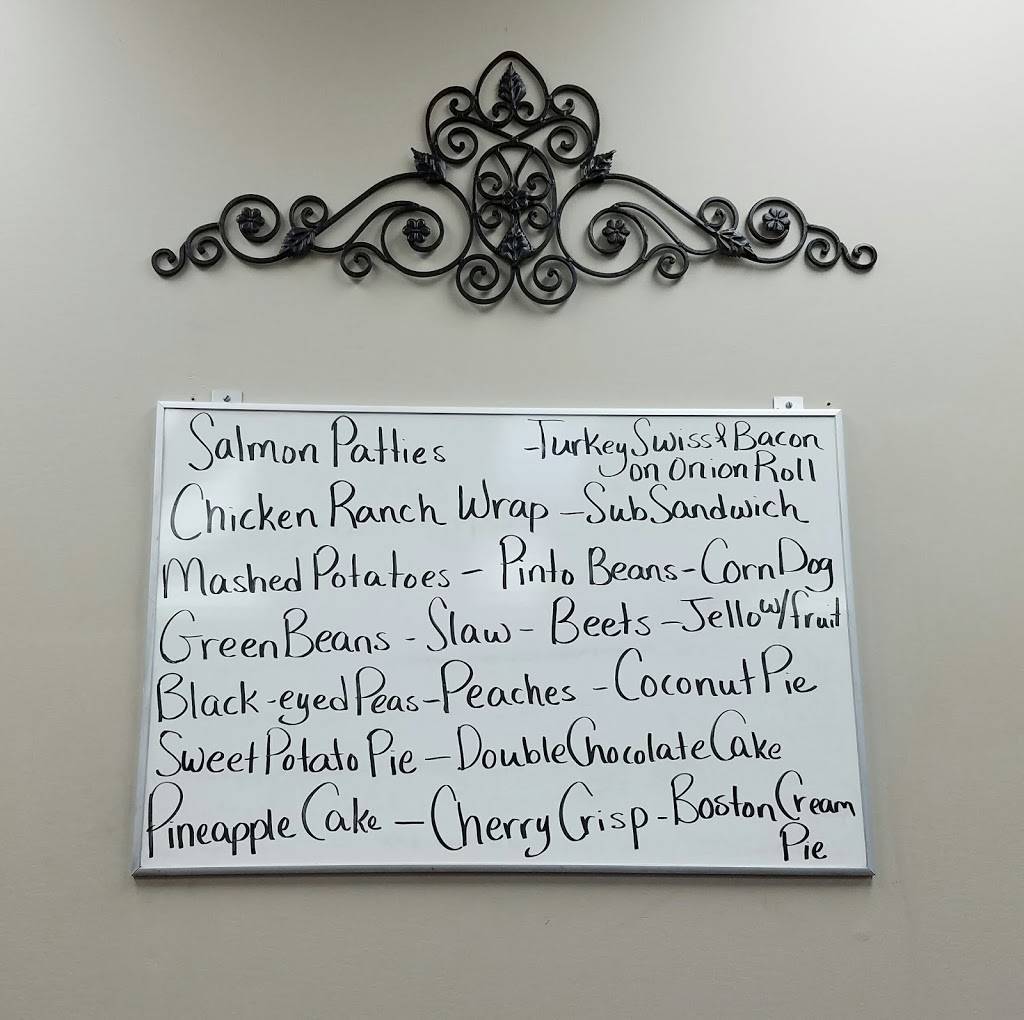 Salmon Patties -Turkey Swiss & Bacon
on Onion Roll
Chicken Ranch Wrap - Sub Sandwich
Mashed Potatoes - Pinto Beans - Corn Dog
Green Beans - Slaw - Beets - Jello w/fruit
Black-eyed Peas - Peaches - Coconut Pie
Sweet Potato Pie - Double Chocolate Cake
Pineapple Cake - Cherry Crisp - Boston Cream
Pie